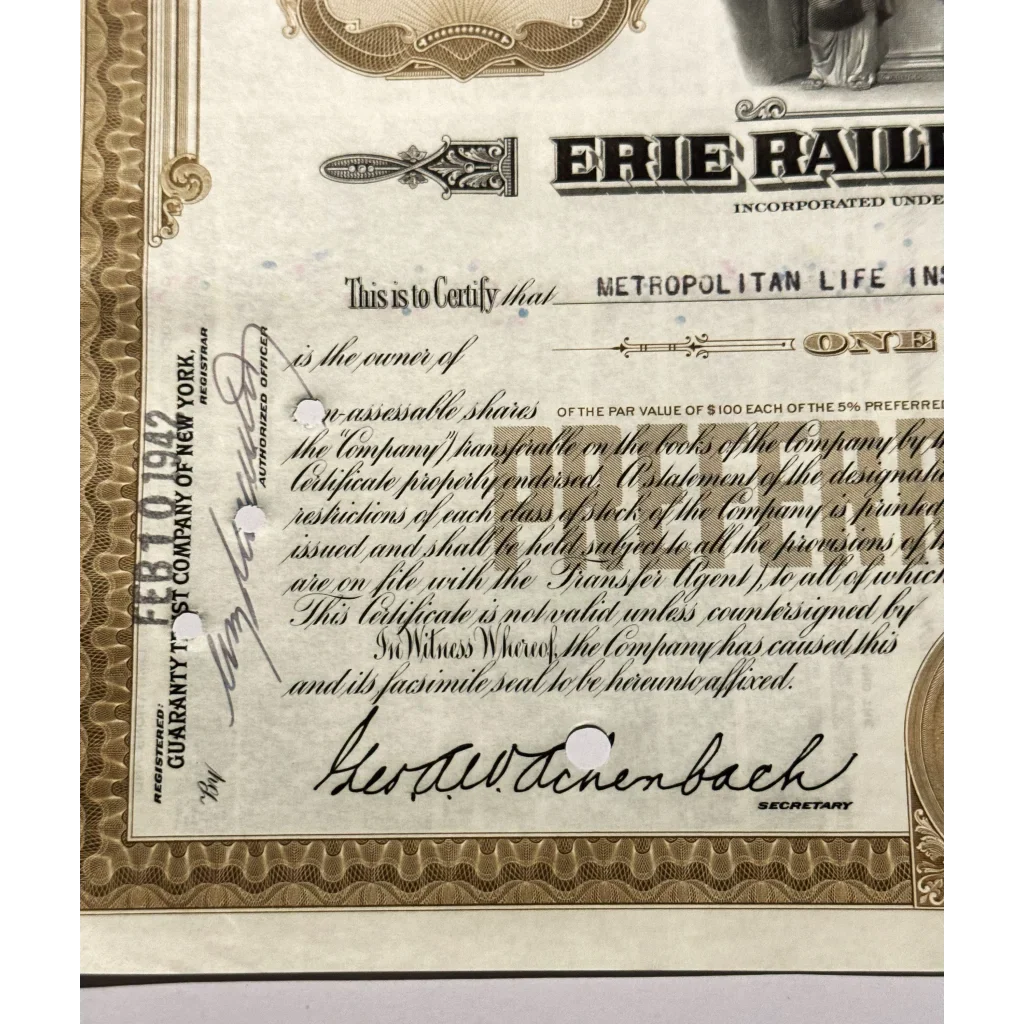 ERIE RAIL
INCORPORATED UNDE
This is to Certify that METROPOLITAN LIFE INS
is the owner of ONE
n-assessable shares OF THE PAR VALUE OF $100 EACH OF THE 5% PREFERRED
PREFERR
the "Company") transferable on the books of the Company by t
Certificate properly endorsed. A statement of the designati
restrictions of each class of stock of the Company is printed
issued and shall be held subject to all the provisions of t
are on file with the Transfer Agent), to all of which
This Certificate is not valid unless countersigned by
In Witness Whereof, the Company has caused this
and its facsimile seal to be hereunto affixed.
Geo. A. W. Achenbach
SECRETARY
REGISTERED:
GUARANTY T ST COMPANY OF NEW YORK,
REGISTRAR
FEB 10 1942
By
AUTHORIZED OFFICER